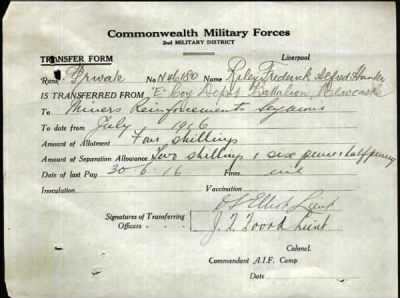 Commonwealth Military Forces
2ND MILITARY DISTRICT
TRANSFER FORM Liverpool
Rank Private No N46180 Name Riley Frederick Alfred
IS TRANSFERRED FROM "E" Coy Depot Battalion, Newcastle
To Miners Reinforcements Seymour
To date from July 1916
Amount of Allotment Four shillings
Amount of Separation Allowance Two shillings & six pence & half penny
Date of last Pay 30/6/16 Fines nil
Inoculation Vaccination
Elliot Lieut
Signatures of Transferring
Officers - - J. L. Lieut
Colonel.
Commandant A.I.F. Camp
Date